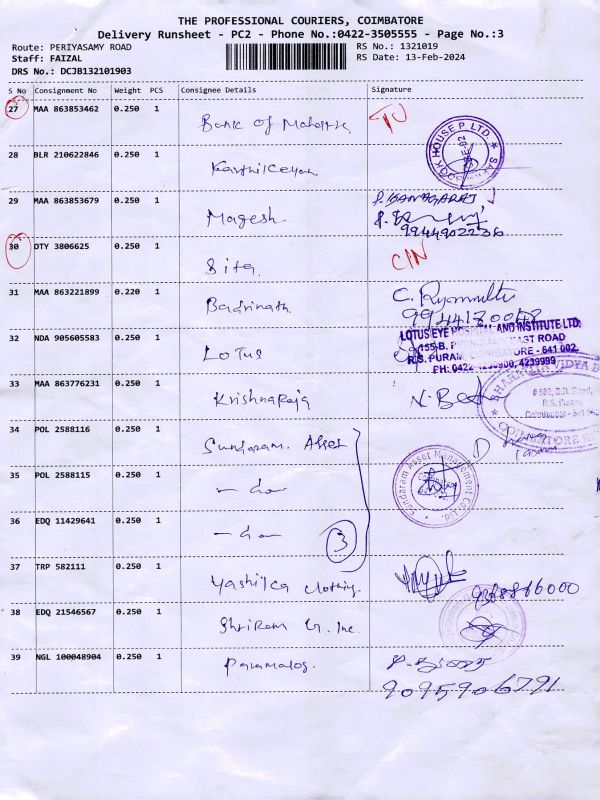 THE PROFESSIONAL COURIERS, COIMBATORE
Delivery Runsheet - PC2 - Phone No.:0422-3505555 - Page No.:3
Route: PERIYASAMY ROAD
Staff: FAIZAL
DRS No.: DCJB132101903
RS No.: 1321019
RS Date: 13-Feb-2024
S No Consignment No Weight PCS Consignee Details Signature
27 MAA 863853462 0.250 1
Bank of
28 BLR 210622846 0.250 1
Karthikeyan
29 MAA 863853679 0.250 1
Magesh
9944902236
30 DTY 3806625 0.250 1 C/N
Sita
31 MAA 863221899 0.220 1
Badrinath
32 NDA 905605583 0.250 1
Lotus
LOTUS EYE HOSPITAL AND INSTITUTE LTD.
R.S. PURAM, COIMBATORE - 641 002.
33 MAA 863776231 0.250 1
Krishnaraja
34 POL 2588116 0.250 1
Sundaram Asset
35 POL 2588115 0.250 1
- do -
Sundaram Asset Management Co. Ltd.
36 EDQ 11429641 0.250 1
- do - 3
37 TRP 582111 0.250 1
Yashika Clothing.
38 EDQ 21546567 0.250 1
Shriram G. Inc.
39 NGL 100048904 0.250 1
9095906791